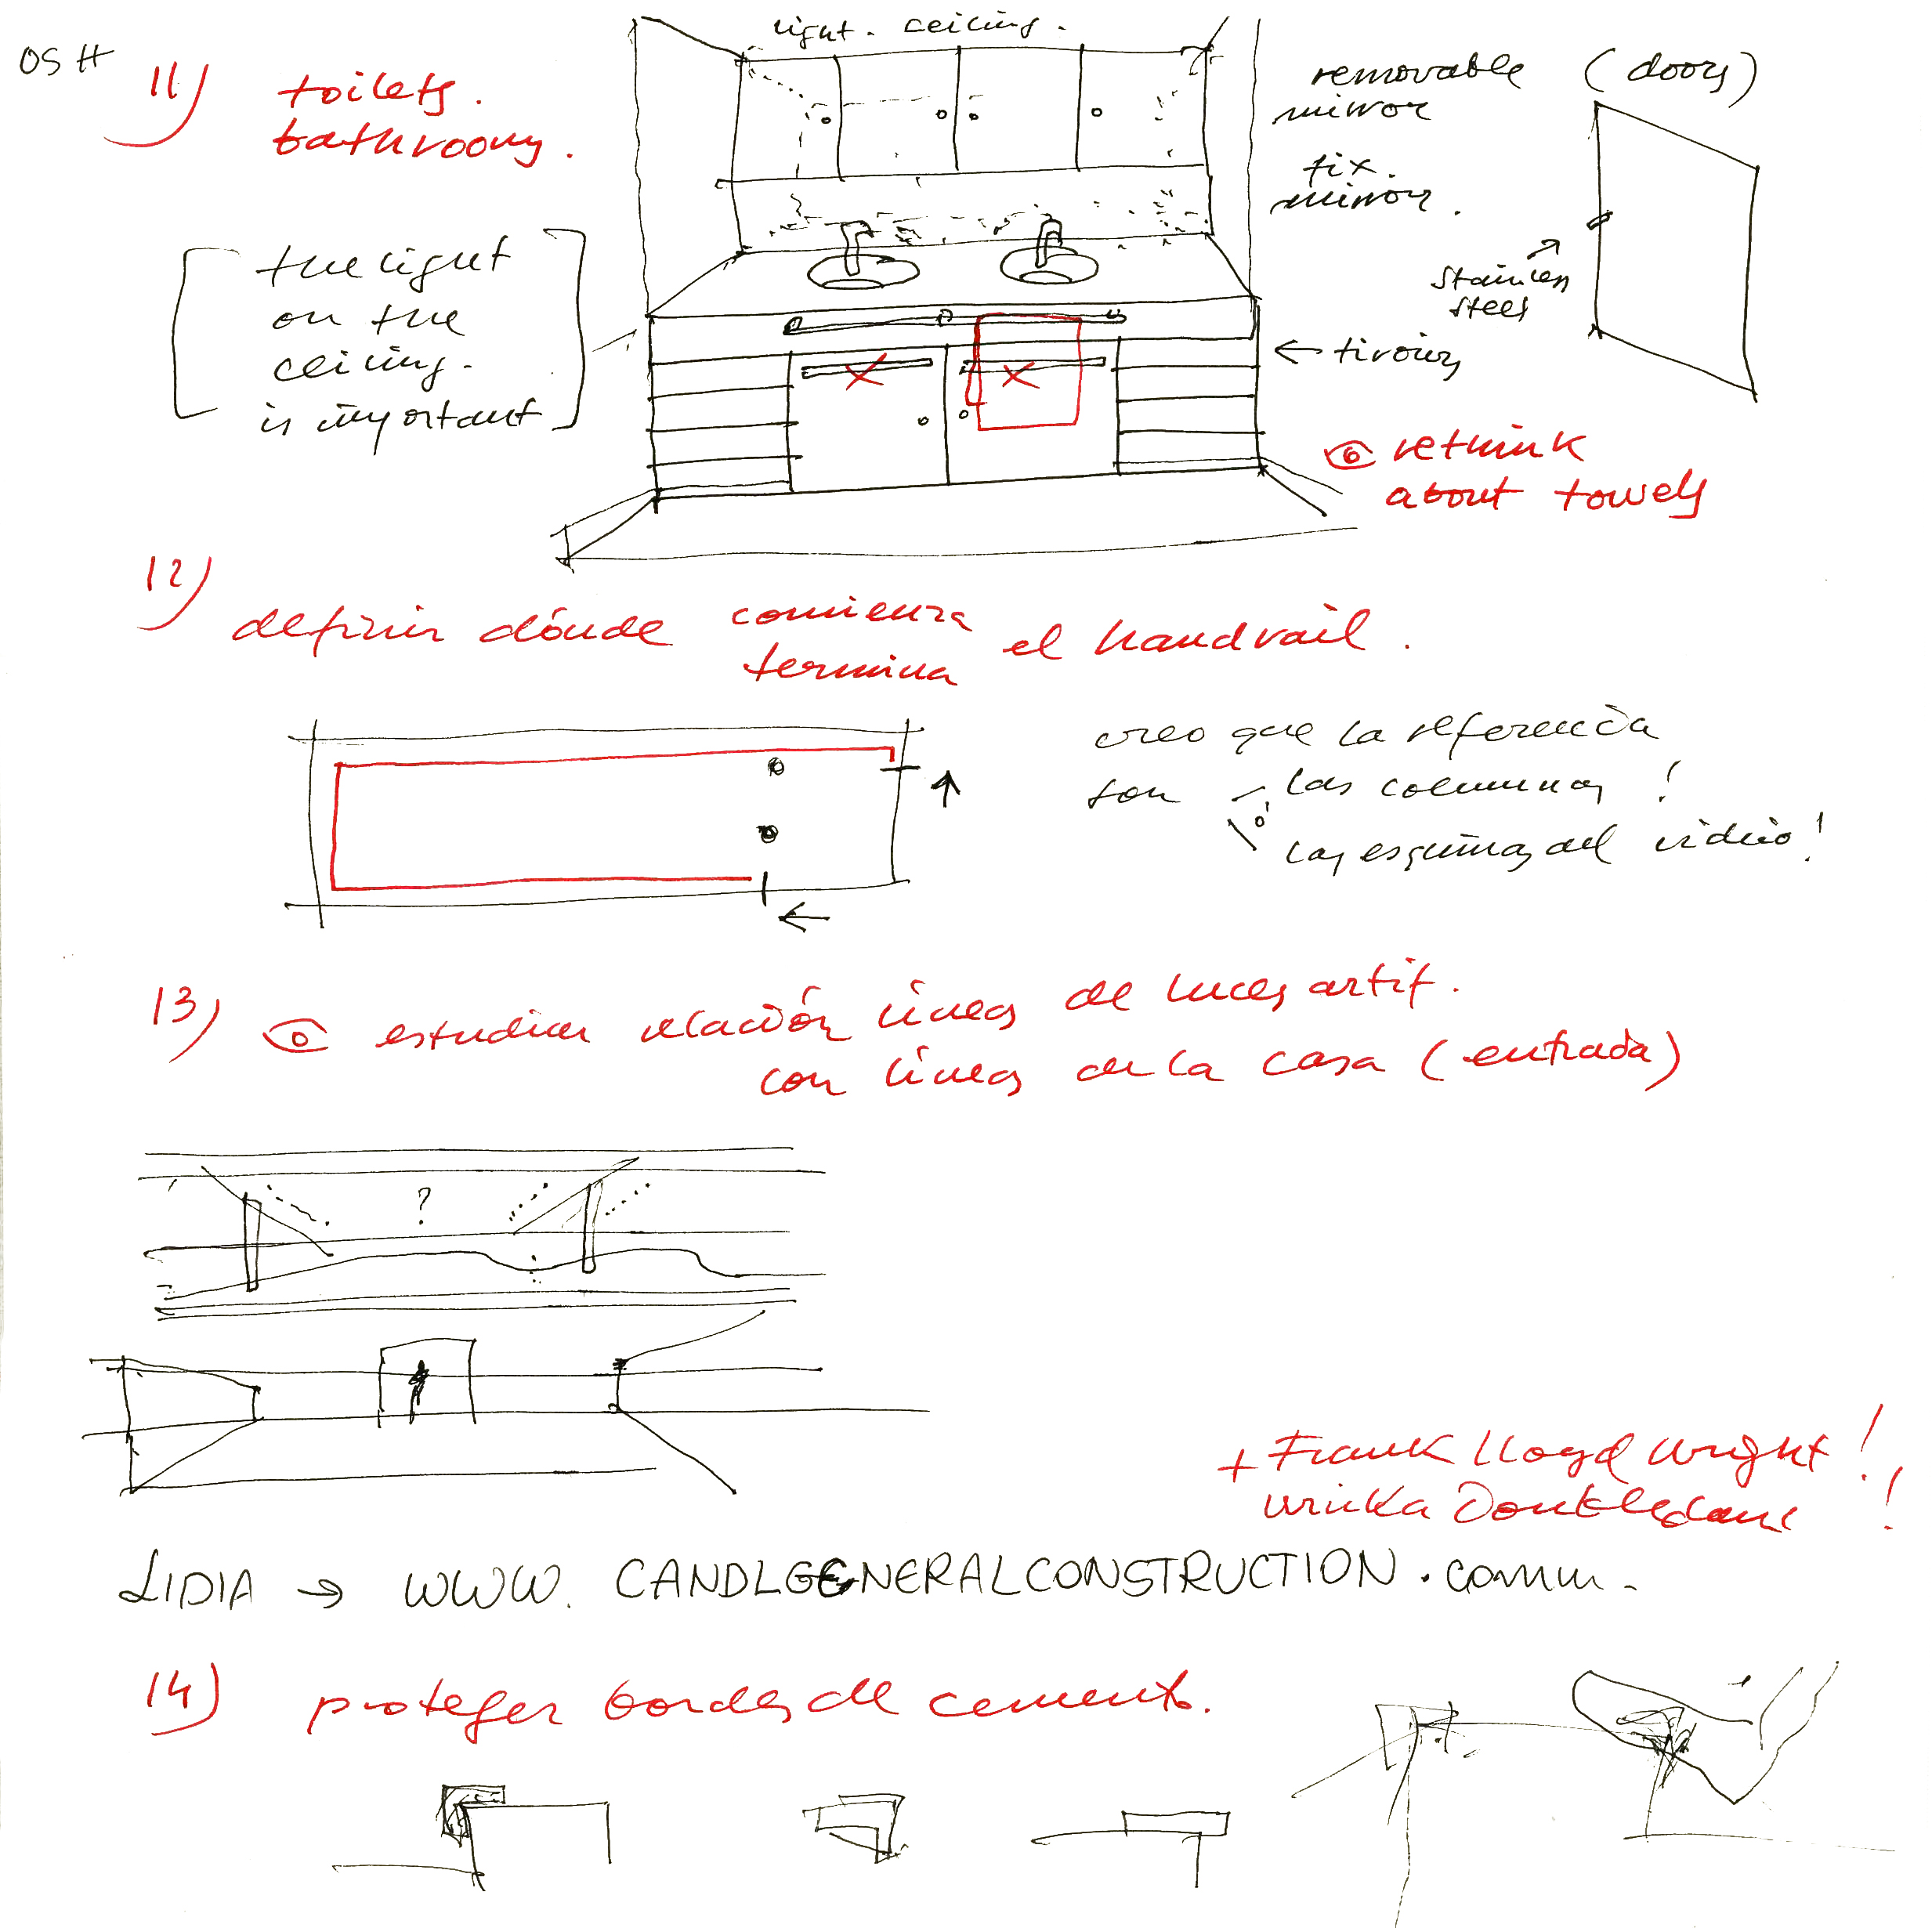 OSH
11) toilets.
bathrooms.
light. ceiling.
removable (doors)
mirror
fix.
mirror.
[the light
on the
ceiling.
is important]
stainless
steel
← tiroirs
rethink
about towels
12)
definir dónde comienza el handrail.
termina
creo que la referencia
son las columnas!
o
las esquinas del vidrio!
13) estudiar relación líneas de luces artif.
con líneas de la casa (entrada)
?
+ Frank Lloyd Wright!
!
LIDIA → WWW. CANDLGENERALCONSTRUCTION.comm.
14) proteger bordes de cemento.